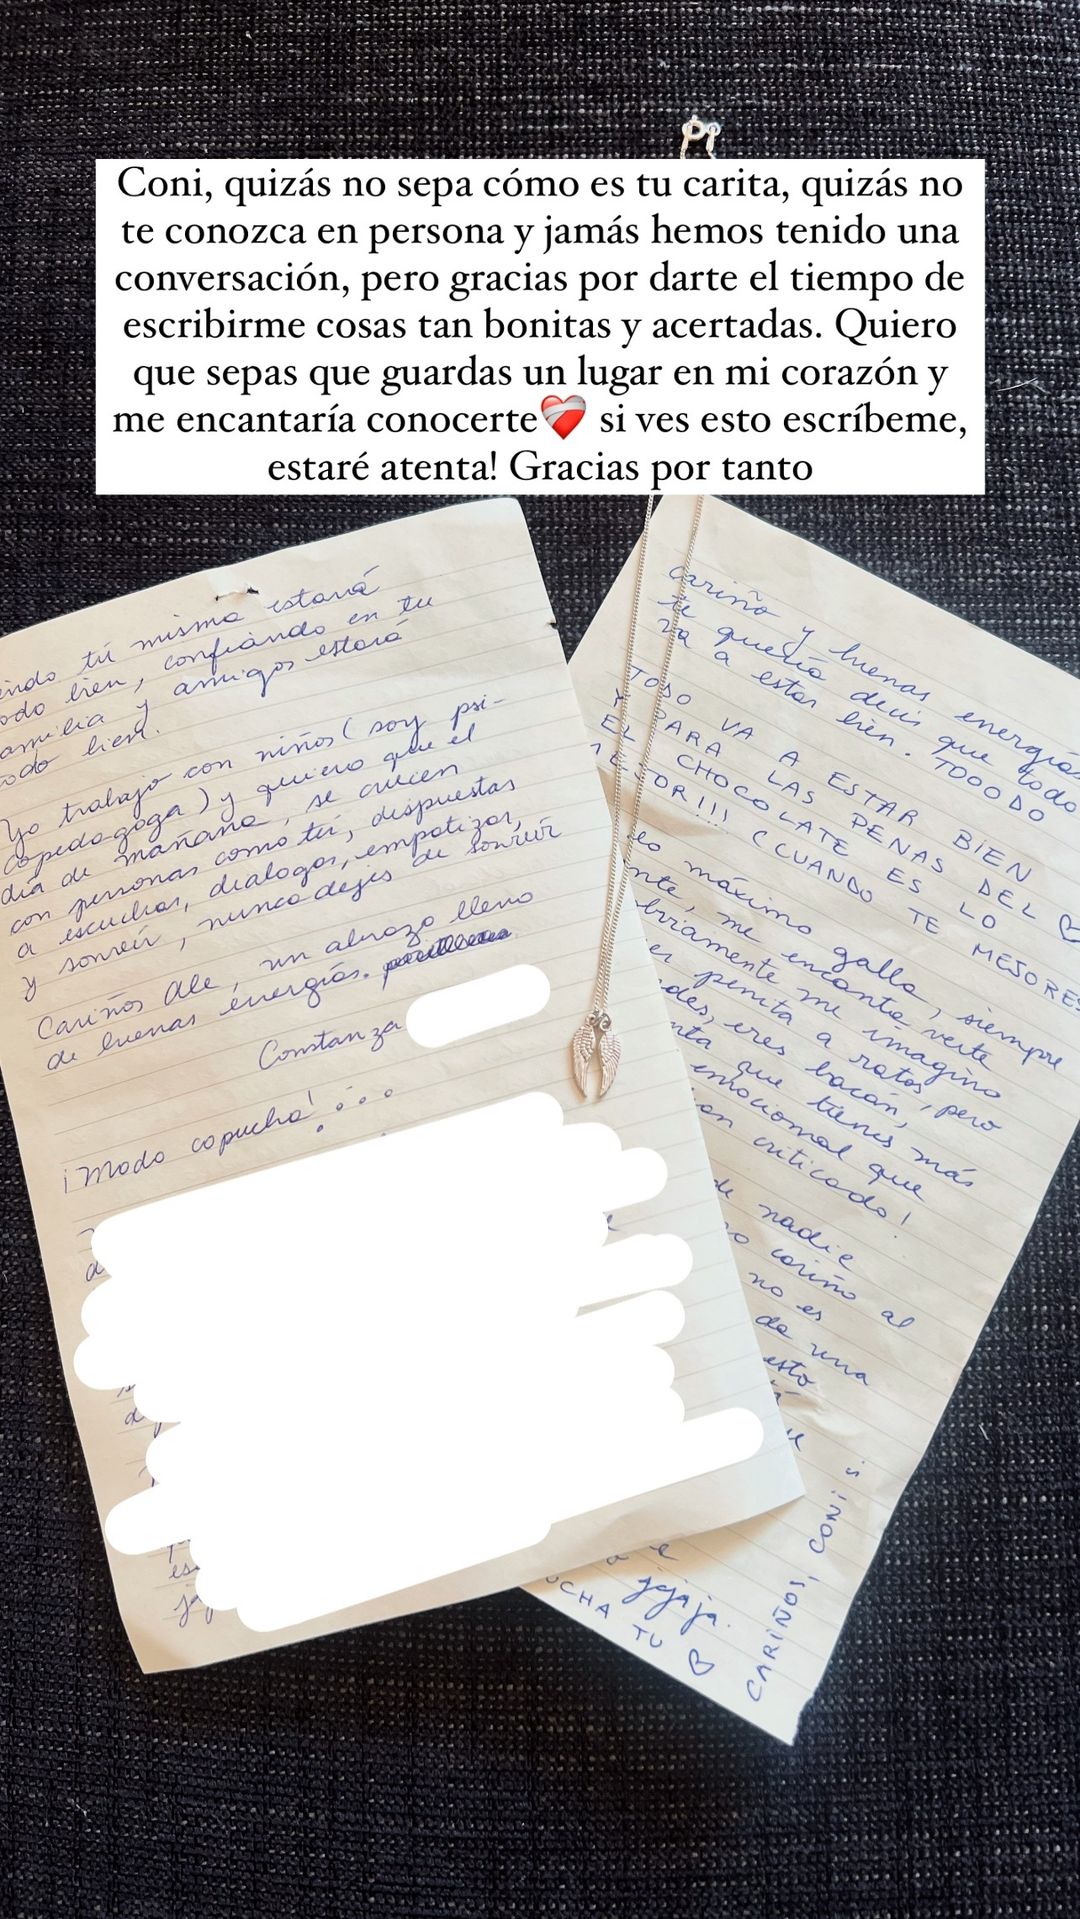 Coni, quizás no sepa cómo es tu carita, quizás no
te conozca en persona y jamás hemos tenido una
conversación, pero gracias por darte el tiempo de
escribirme cosas tan bonitas y acertadas. Quiero
que sepas que guardas un lugar en mi corazón y
me encantaría conocerte❤️‍🩹 si ves esto escríbeme,
estaré atenta! Gracias por tanto
tú misma estará
bien, confiando en tu
y amigos estará
bien.
Yo trabajo con niños (soy psi-
copedagoga) y quiero que el
día de mañana, se crucen
con personas como tú, dispuestas
a escuchar, dialogar, empatizar,
y sonreir, nunca dejes de sonreir
Cariños Ale, un abrazo lleno
de buenas energías.
Constanza
¡Modo copucha! ...
cariño y buenas energías
te quería decir que todo
va a estar bien. TOOODO
TODO VA A ESTAR BIEN
Y PARA LAS PENAS DEL ♡
EL CHOCOLATE ES LO
(CUANDO TE MEJORES
lo máximo galla, siempre
me encanta verte
obviamente me imagino
penita a ratos, pero
eres bacán,
que tienes más
emocional que
han criticado!
de nadie
cariño al
no es
de una
esto
jajaja.
TU ♡
CARIÑOS, CONI